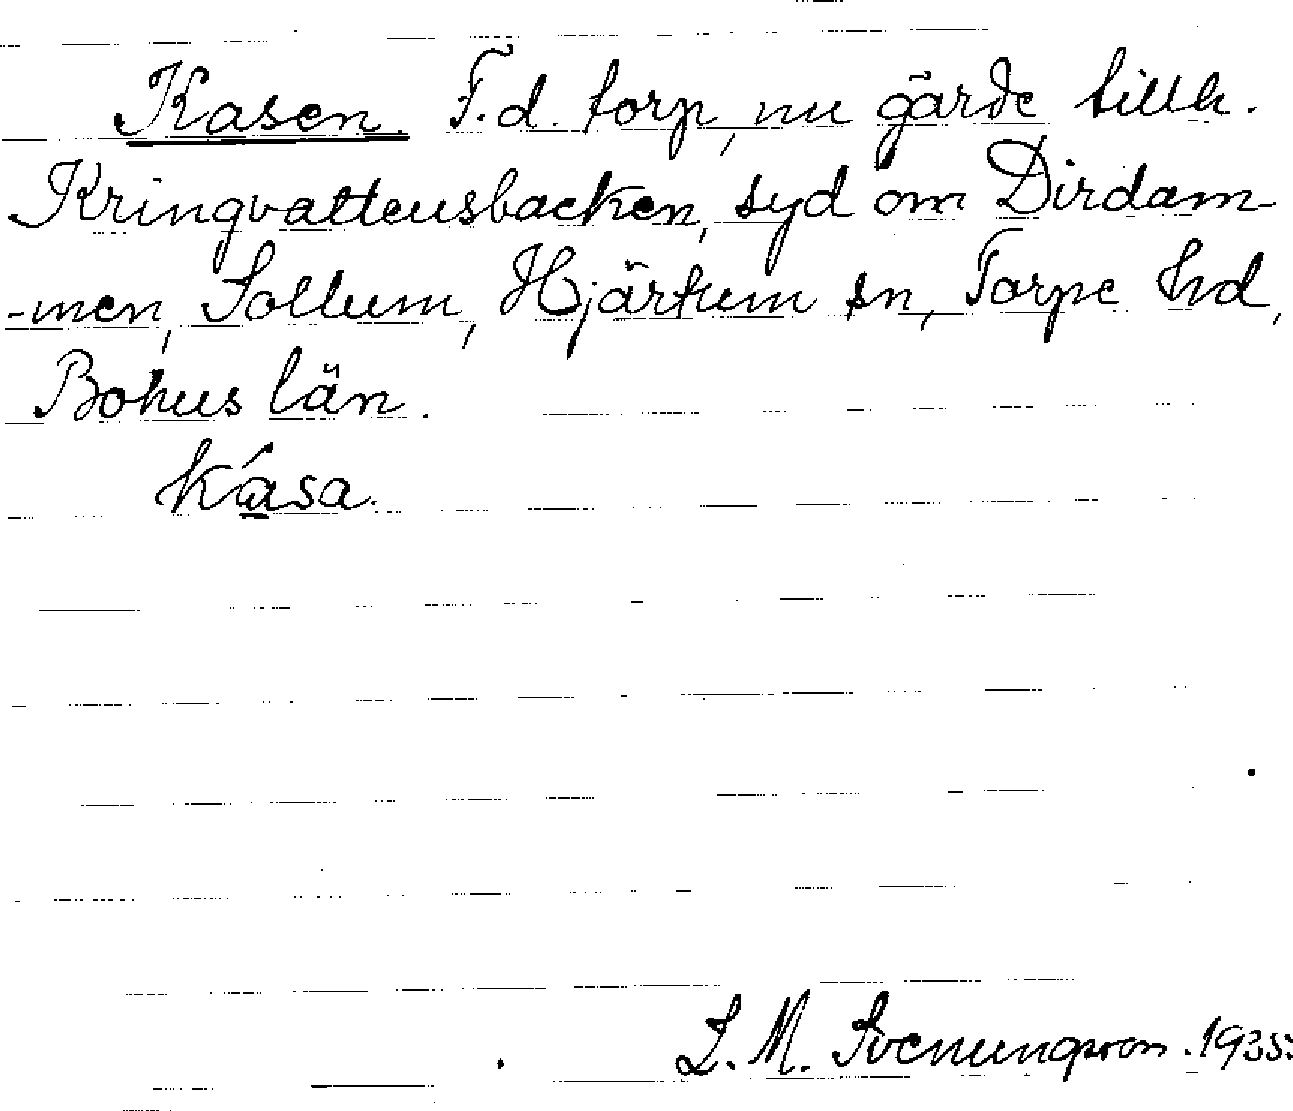 Kasen. F.d. torp, nu gärde tillh.
Kringvattensbacken, syd om Dirdam-
-men, Sollum, Hjärtum sn, Torpe hd,
Bohus län.
Kása.
L. M. Svenungsson. 1935.